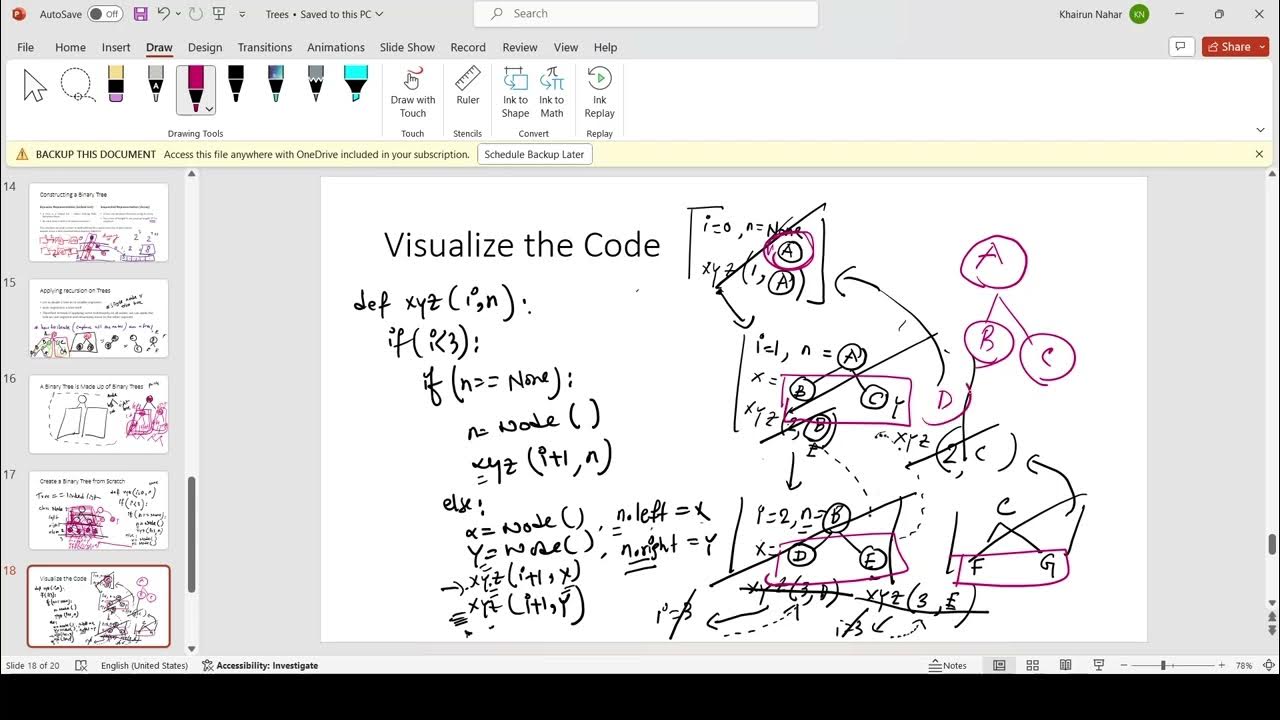 AutoSave Off Trees • Saved to this PC Search Khairun Nahar KN
File Home Insert Draw Design Transitions Animations Slide Show Record Review View Help Share
Draw with Touch
Ruler
Ink to Shape
Ink to Math
Ink Replay
Drawing Tools Touch Stencils Convert Replay
BACKUP THIS DOCUMENT Access this file anywhere with OneDrive included in your subscription. Schedule Backup Later
14
Constructing a Binary Tree
15
Applying recursion on Trees
16
A Binary Tree is Made Up of Binary Trees
17
Create a Binary Tree from Scratch
18
Visualize the Code
Visualize the Code
def xyz(i,n):
if(i<3):
if(n== None):
n= Node()
xyz(i+1, n)
else:
x= Node() ; n.left = X
Y= Node() , n.right = Y
→ xyz(i+1, x)
xyz(i+1, Y)
i=0, n=None
A
xyz(1, A)
i=1, n = A
x = B C Y
xyz(2, B)
E
xyz(2, C)
i=2, n= B
x= D E
xyz(3, D) xyz(3, E)
i=3 i=3
A
B C
D
C
F G
Slide 18 of 20 English (United States) Accessibility: Investigate Notes 78%